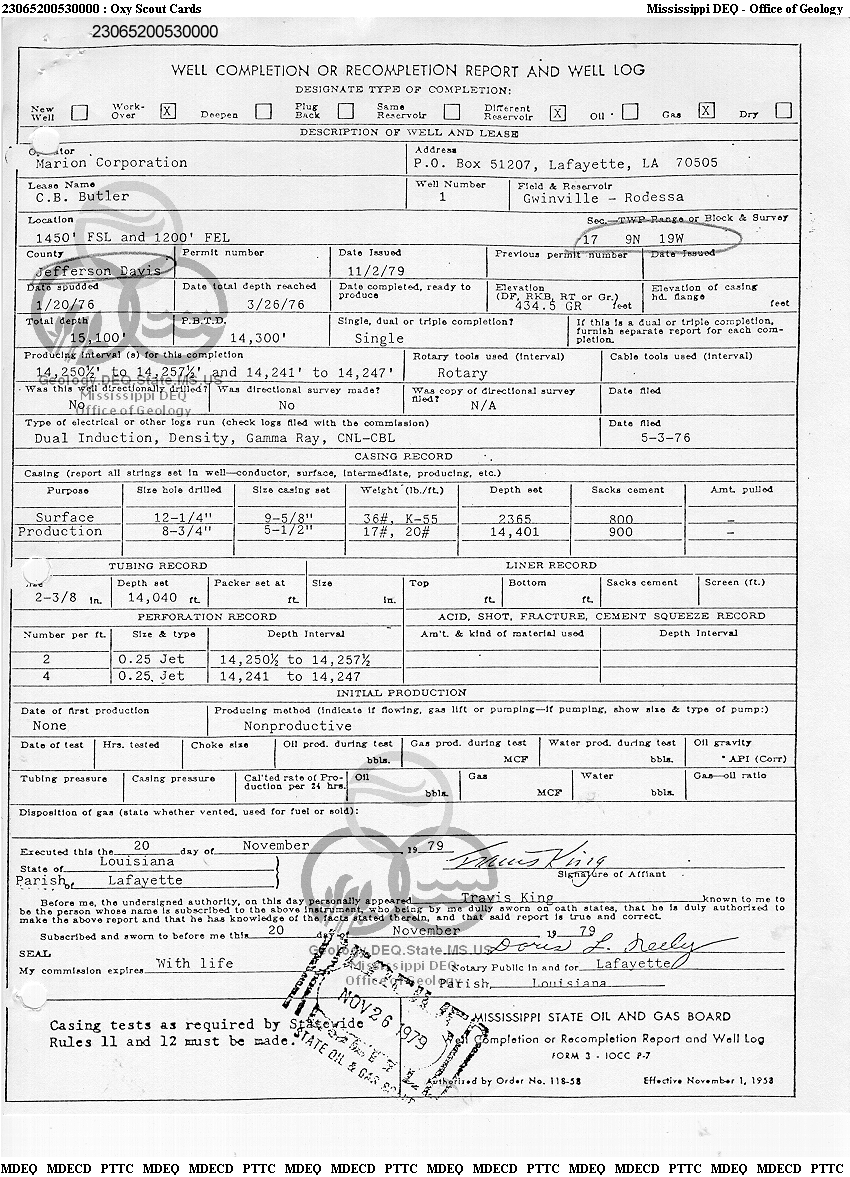 23065200530000 : Oxy Scout Cards Mississippi DEQ - Office of Geology
23065200530000
WELL COMPLETION OR RECOMPLETION REPORT AND WELL LOG
DESIGNATE TYPE OF COMPLETION:
New Well Work-Over X Deepen Plug Back Same Reservoir Different Reservoir X Oil Gas X Dry
DESCRIPTION OF WELL AND LEASE
Operator Address
Marion Corporation P.O. Box 51207, Lafayette, LA 70505
Lease Name Well Number Field & Reservoir
C.B. Butler 1 Gwinville - Rodessa
Location Sec.—TWP-Range or Block & Survey
1450' FSL and 1200' FEL 17 9N 19W
County Permit number Date Issued Previous permit number Date Issued
Jefferson Davis 11/2/79
Date spudded Date total depth reached Date completed, ready to produce Elevation (DF, RKB, RT or Gr.) Elevation of casing hd. flange
1/20/76 3/26/76 434.5 GR feet feet
Total depth P.B.T.D. Single, dual or triple completion? If this is a dual or triple completion, furnish separate report for each completion.
15,100' 14,300' Single
Producing interval (s) for this completion Rotary tools used (interval) Cable tools used (interval)
14,250½' to 14,257½' and 14,241' to 14,247' Rotary
Geology.DEQ.State.MS.US
Was this well directionally drilled? Was directional survey made? Was copy of directional survey filed? Date filed
Mississippi DEQ
No No N/A
Office of Geology
Type of electrical or other logs run (check logs filed with the commission) Date filed
Dual Induction, Density, Gamma Ray, CNL-CBL 5-3-76
CASING RECORD
Casing (report all strings set in well—conductor, surface, intermediate, producing, etc.)
Purpose Size hole drilled Size casing set Weight (lb./ft.) Depth set Sacks cement Amt. pulled
Surface 12-1/4" 9-5/8" 36#, K-55 2365 800 -
Production 8-3/4" 5-1/2" 17#, 20# 14,401 900 -
TUBING RECORD LINER RECORD
Size Depth set Packer set at Size Top Bottom Sacks cement Screen (ft.)
2-3/8 in. 14,040 ft. ft. in. ft. ft.
PERFORATION RECORD ACID, SHOT, FRACTURE, CEMENT SQUEEZE RECORD
Number per ft. Size & type Depth Interval Am't. & kind of material used Depth Interval
2 0.25 Jet 14,250½ to 14,257½
4 0.25 Jet 14,241 to 14,247
INITIAL PRODUCTION
Date of first production Producing method (indicate if flowing, gas lift or pumping—if pumping, show size & type of pump:)
None Nonproductive
Date of test Hrs. tested Choke size Oil prod. during test Gas prod. during test Water prod. during test Oil gravity
bbls. MCF bbls. ° API (Corr)
Tubing pressure Casing pressure Cal'ted rate of Production per 24 hrs. Oil Gas Water Gas—oil ratio
bbls. MCF bbls.
Disposition of gas (state whether vented, used for fuel or sold):
Executed this the 20 day of November 19 79
State of Louisiana Travis King
Signature of Affiant
Parish of Lafayette
Before me, the undersigned authority, on this day personally appeared Travis King known to me to
be the person whose name is subscribed to the above instrument, who being by me duly sworn on oath states, that he is duly authorized to
make the above report and that he has knowledge of the facts stated therein, and that said report is true and correct.
Subscribed and sworn to before me this 20 day of November 19 79
Geology.DEQ.State.MS.US
SEAL Doris L. Neely
My commission expires With life Notary Public in and for Lafayette
Mississippi DEQ
Office of Geology
Parish, Louisiana
NOV 26 1979
STATE OIL & GAS
Casing tests as required by Statewide
Rules 11 and 12 must be made.
MISSISSIPPI STATE OIL AND GAS BOARD
Well Completion or Recompletion Report and Well Log
FORM 3 - IOCC P-7
Authorized by Order No. 118-58 Effective November 1, 1958
MDEQ MDECD PTTC MDEQ MDECD PTTC MDEQ MDECD PTTC MDEQ MDECD PTTC MDEQ MDECD PTTC MDEQ MDECD PTTC